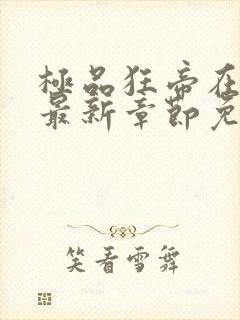 極品狂帝在
最新章節免
笑看雪舞